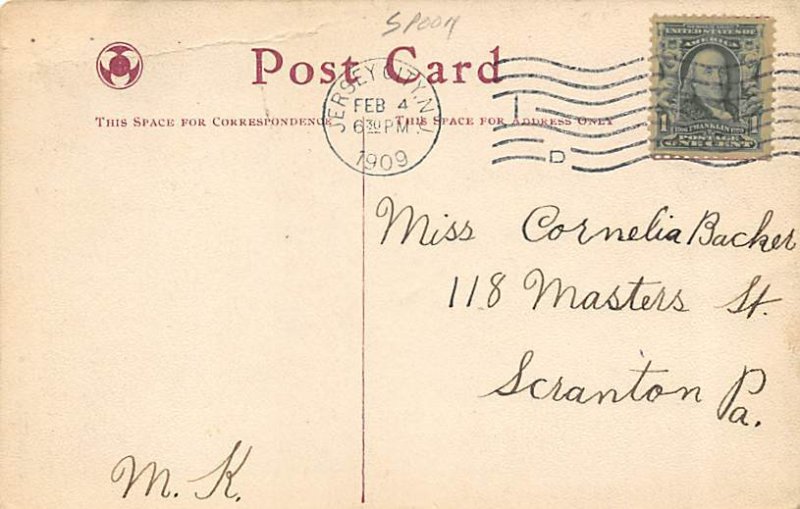 Spoon
Post Card
THIS SPACE FOR CORRESPONDENCE
THIS SPACE FOR ADDRESS ONLY
JERSEY CITY, N.J.
FEB 4
6 30 PM
1909
1
D
UNITED STATES OF
AMERICA
1 FRANKLIN 1
POSTAGE
ONE CENT
Miss Cornelia Backer
118 Masters St.
Scranton Pa.
M. K.